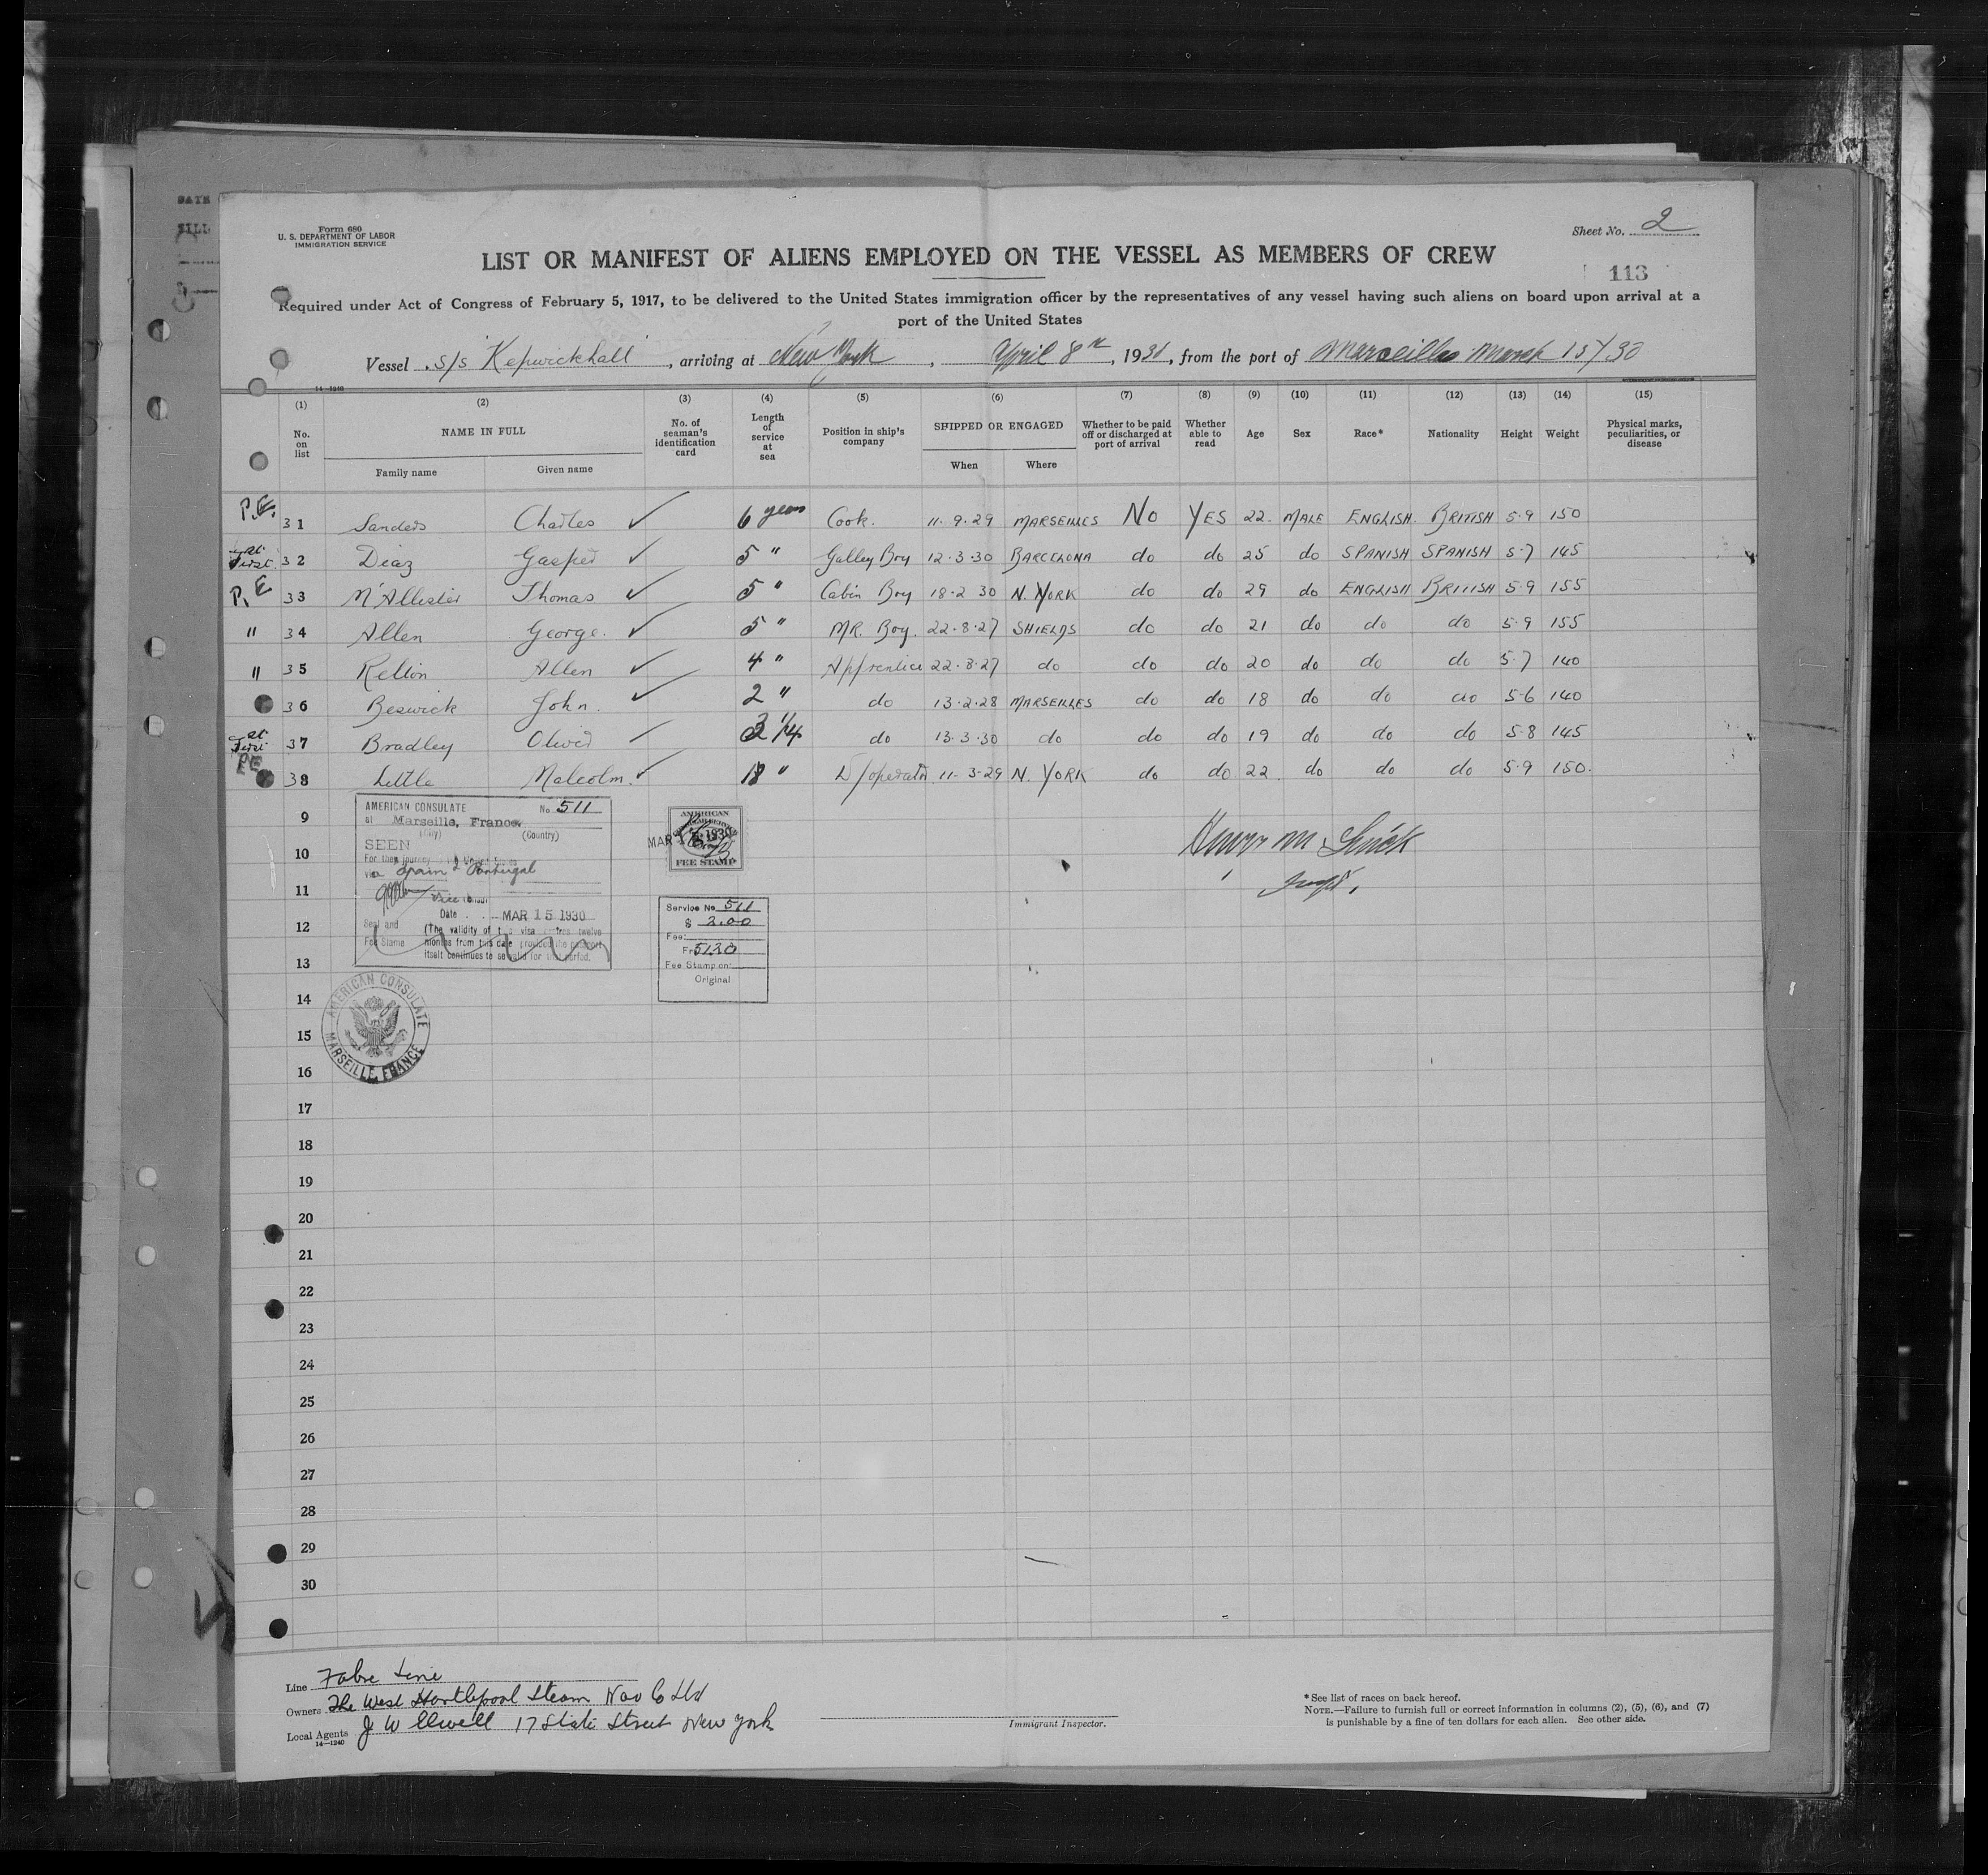 Form 680
U. S. DEPARTMENT OF LABOR
IMMIGRATION SERVICE
Sheet No. 2
LIST OR MANIFEST OF ALIENS EMPLOYED ON THE VESSEL AS MEMBERS OF CREW
113
Required under Act of Congress of February 5, 1917, to be delivered to the United States immigration officer by the representatives of any vessel having such aliens on board upon arrival at a
port of the United States
Vessel S/S "Kepwickhall", arriving at New York, April 8th, 1930, from the port of Marseilles March 15/30
14-1240
(1) (2) (3) (4) (5) (6) (7) (8) (9) (10) (11) (12) (13) (14) (15)
No. on list NAME IN FULL Family name Given name No. of seaman's identification card Length of service at sea Position in ship's company SHIPPED OR ENGAGED When Where Whether to be paid off or discharged at port of arrival Whether able to read Age Sex Race* Nationality Height Weight Physical marks, peculiarities, or disease
P.E. 31 Sanders Charles ✓ 6 years Cook. 11.9.29 MARSEILLES NO YES 22. MALE ENGLISH. BRITISH 5.9 150
First 32 Diaz Gasper ✓ 5 " Galley Boy 12.3.30 BARCELONA do do 25 do SPANISH SPANISH 5.7 145
P.E 33 McAllister Thomas ✓ 5 " Cabin Boy 18.2 30 N. YORK do do 29 do ENGLISH BRITISH 5.9 155
" 34 Allen George. ✓ 5 " MR. Boy. 22.8.27 SHIELDS do do 21 do do do 5.9 155
" 35 Relton Allen ✓ 4 " Apprentice 22.8.27 do do do 20 do do do 5.7 140
36 Beswick John. ✓ 2 " do 13.2.28 MARSEILLES do do 18 do do do 5.6 140
First 37 Bradley Oliver 1/4 do 13.3.30 do do do 19 do do do 5.8 145
PE 38 Little Malcolm. ✓ " W/operator 11.3.29 N. YORK do do 22 do do do 5.9 150.
9
10
11
12
13
14
15
16
17
18
19
20
21
22
23
24
25
26
27
28
29
30
AMERICAN CONSULATE No. 511
at Marseille, France.
(City) (Country)
SEEN
For the journey to the United States
via Spain & Portugal
Date MAR 15 1930
Seal and
Fee Stamp
(The validity of this visa expires twelve
months from this date provided the passport
itself continues to be valid for that period.
AMERICAN
FEE STAMP
Service No. 511
$ 2.00
Fee:
Fr 51.30
Fee Stamp on:
Original
AMERICAN CONSULATE
MARSEILLE, FRANCE
Line Fabre Line
Owners The West Hartlepool Steam Nav Co Ltd
Local Agents J W Elwell 17 State Street New York
14-1240
Immigrant Inspector.
*See list of races on back hereof.
NOTE.—Failure to furnish full or correct information in columns (2), (5), (6), and (7)
is punishable by a fine of ten dollars for each alien. See other side.